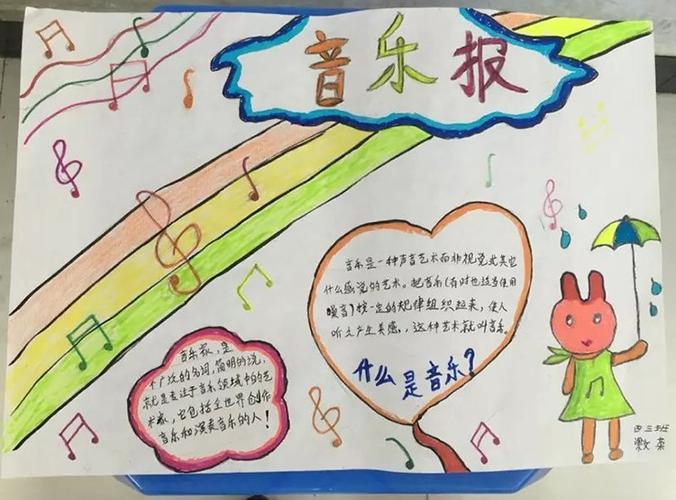 音乐报
音乐是一种声音艺术而非视觉或其它
什么感觉的艺术。把音乐(有时也适当使用
噪音)按一定的规律组织起来,使人
听之产生美感,这种艺术就叫音乐.
什么
是音乐?
音乐家,是
个广泛的名词,简明的说,
就是专注于音乐领域中的艺
术家,它包括全世界创作
音乐和演奏音乐的人!
四三班